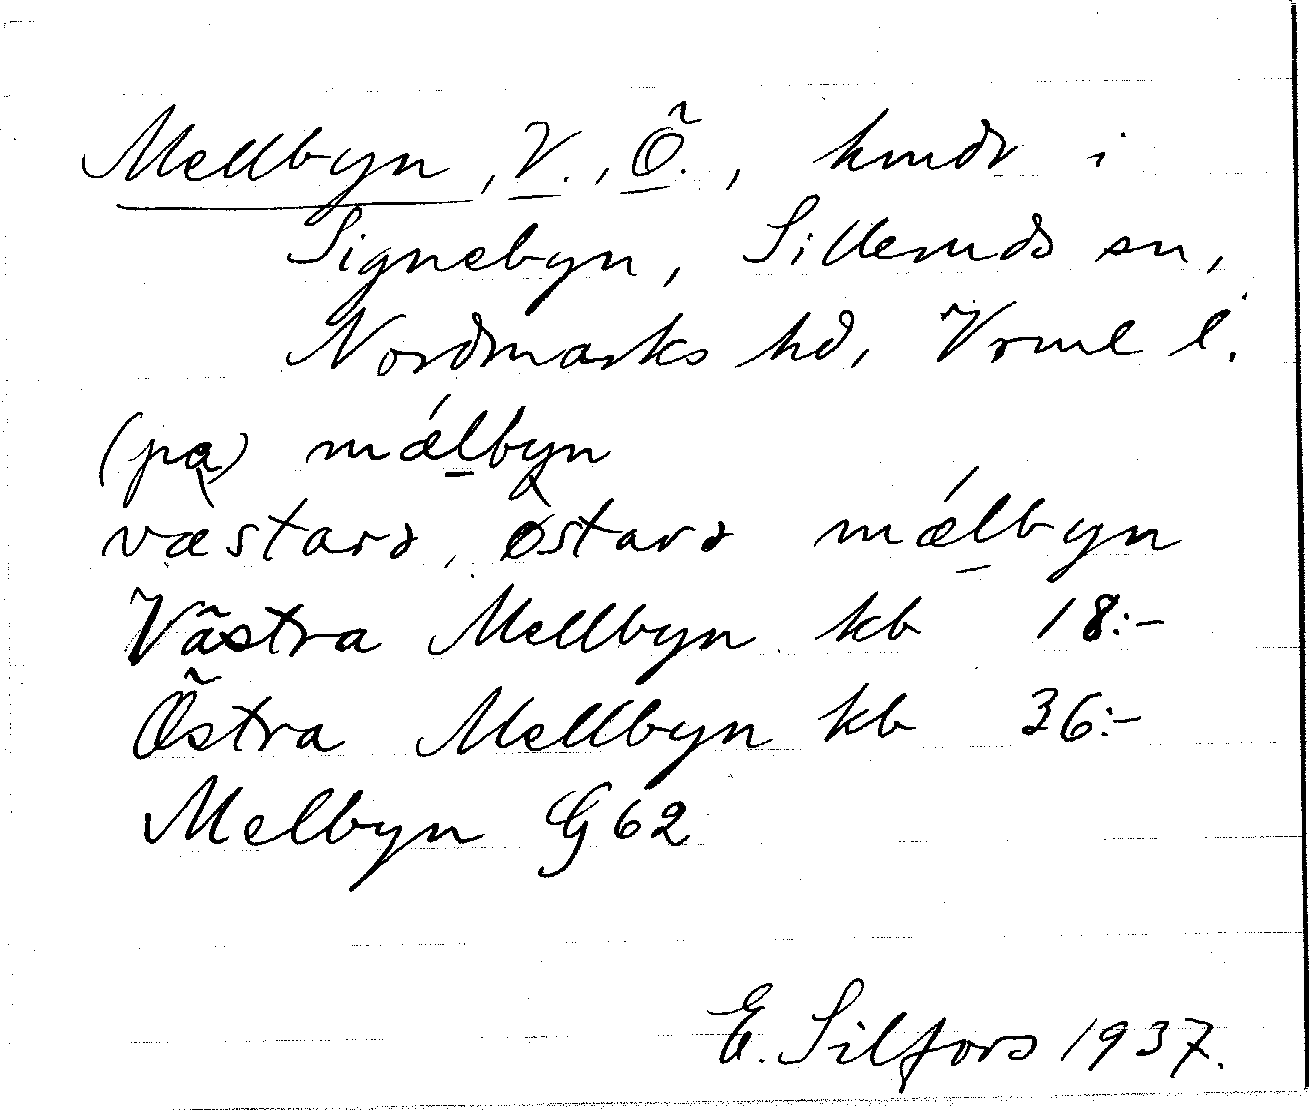 Mellbyn, V., Ö., hmdr i
Signebyn, Silleruds sn,
Nordmarks hd, Vrml l.
(pa) mǽlbyn
væstarə, østarə mǽlbyn
Västra Mellbyn kb 18:-
Östra Mellbyn kb 36:-
Melbyn G62
E. Silfors 1937.